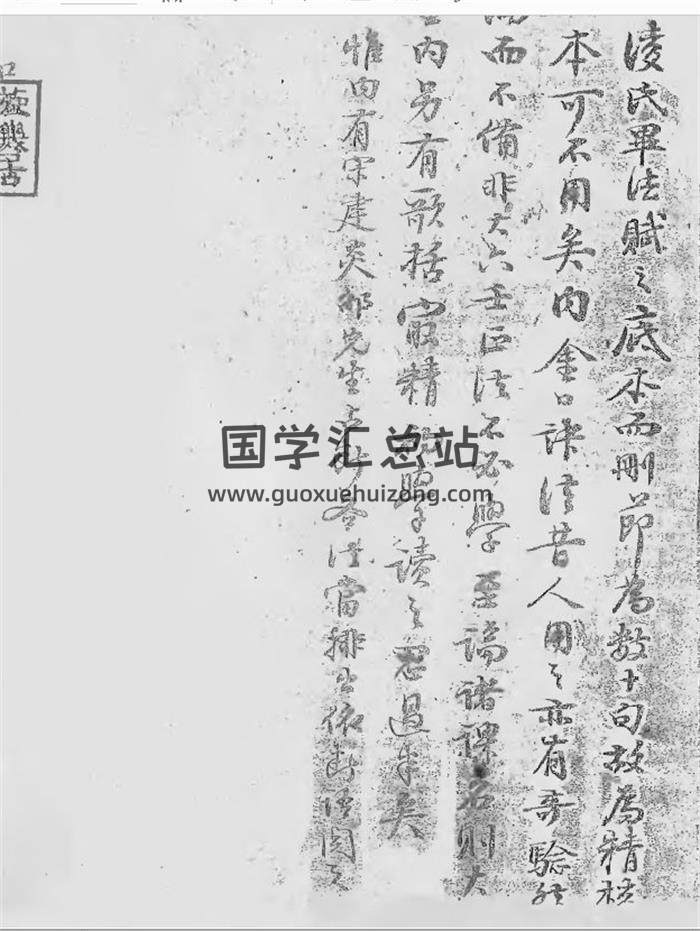 淩氏畢法賦之底本而刪節為數十句故為精
本可不用矣内金口訣法昔人用之亦有奇驗
而不備非大六壬正法不必學至論諸課名則大
内另有歌括最精 學讀之思過半矣
惟内有宋建炎邵先生 法當排出依斷 閱之
國学汇总站
www.guoxuehuizong.com